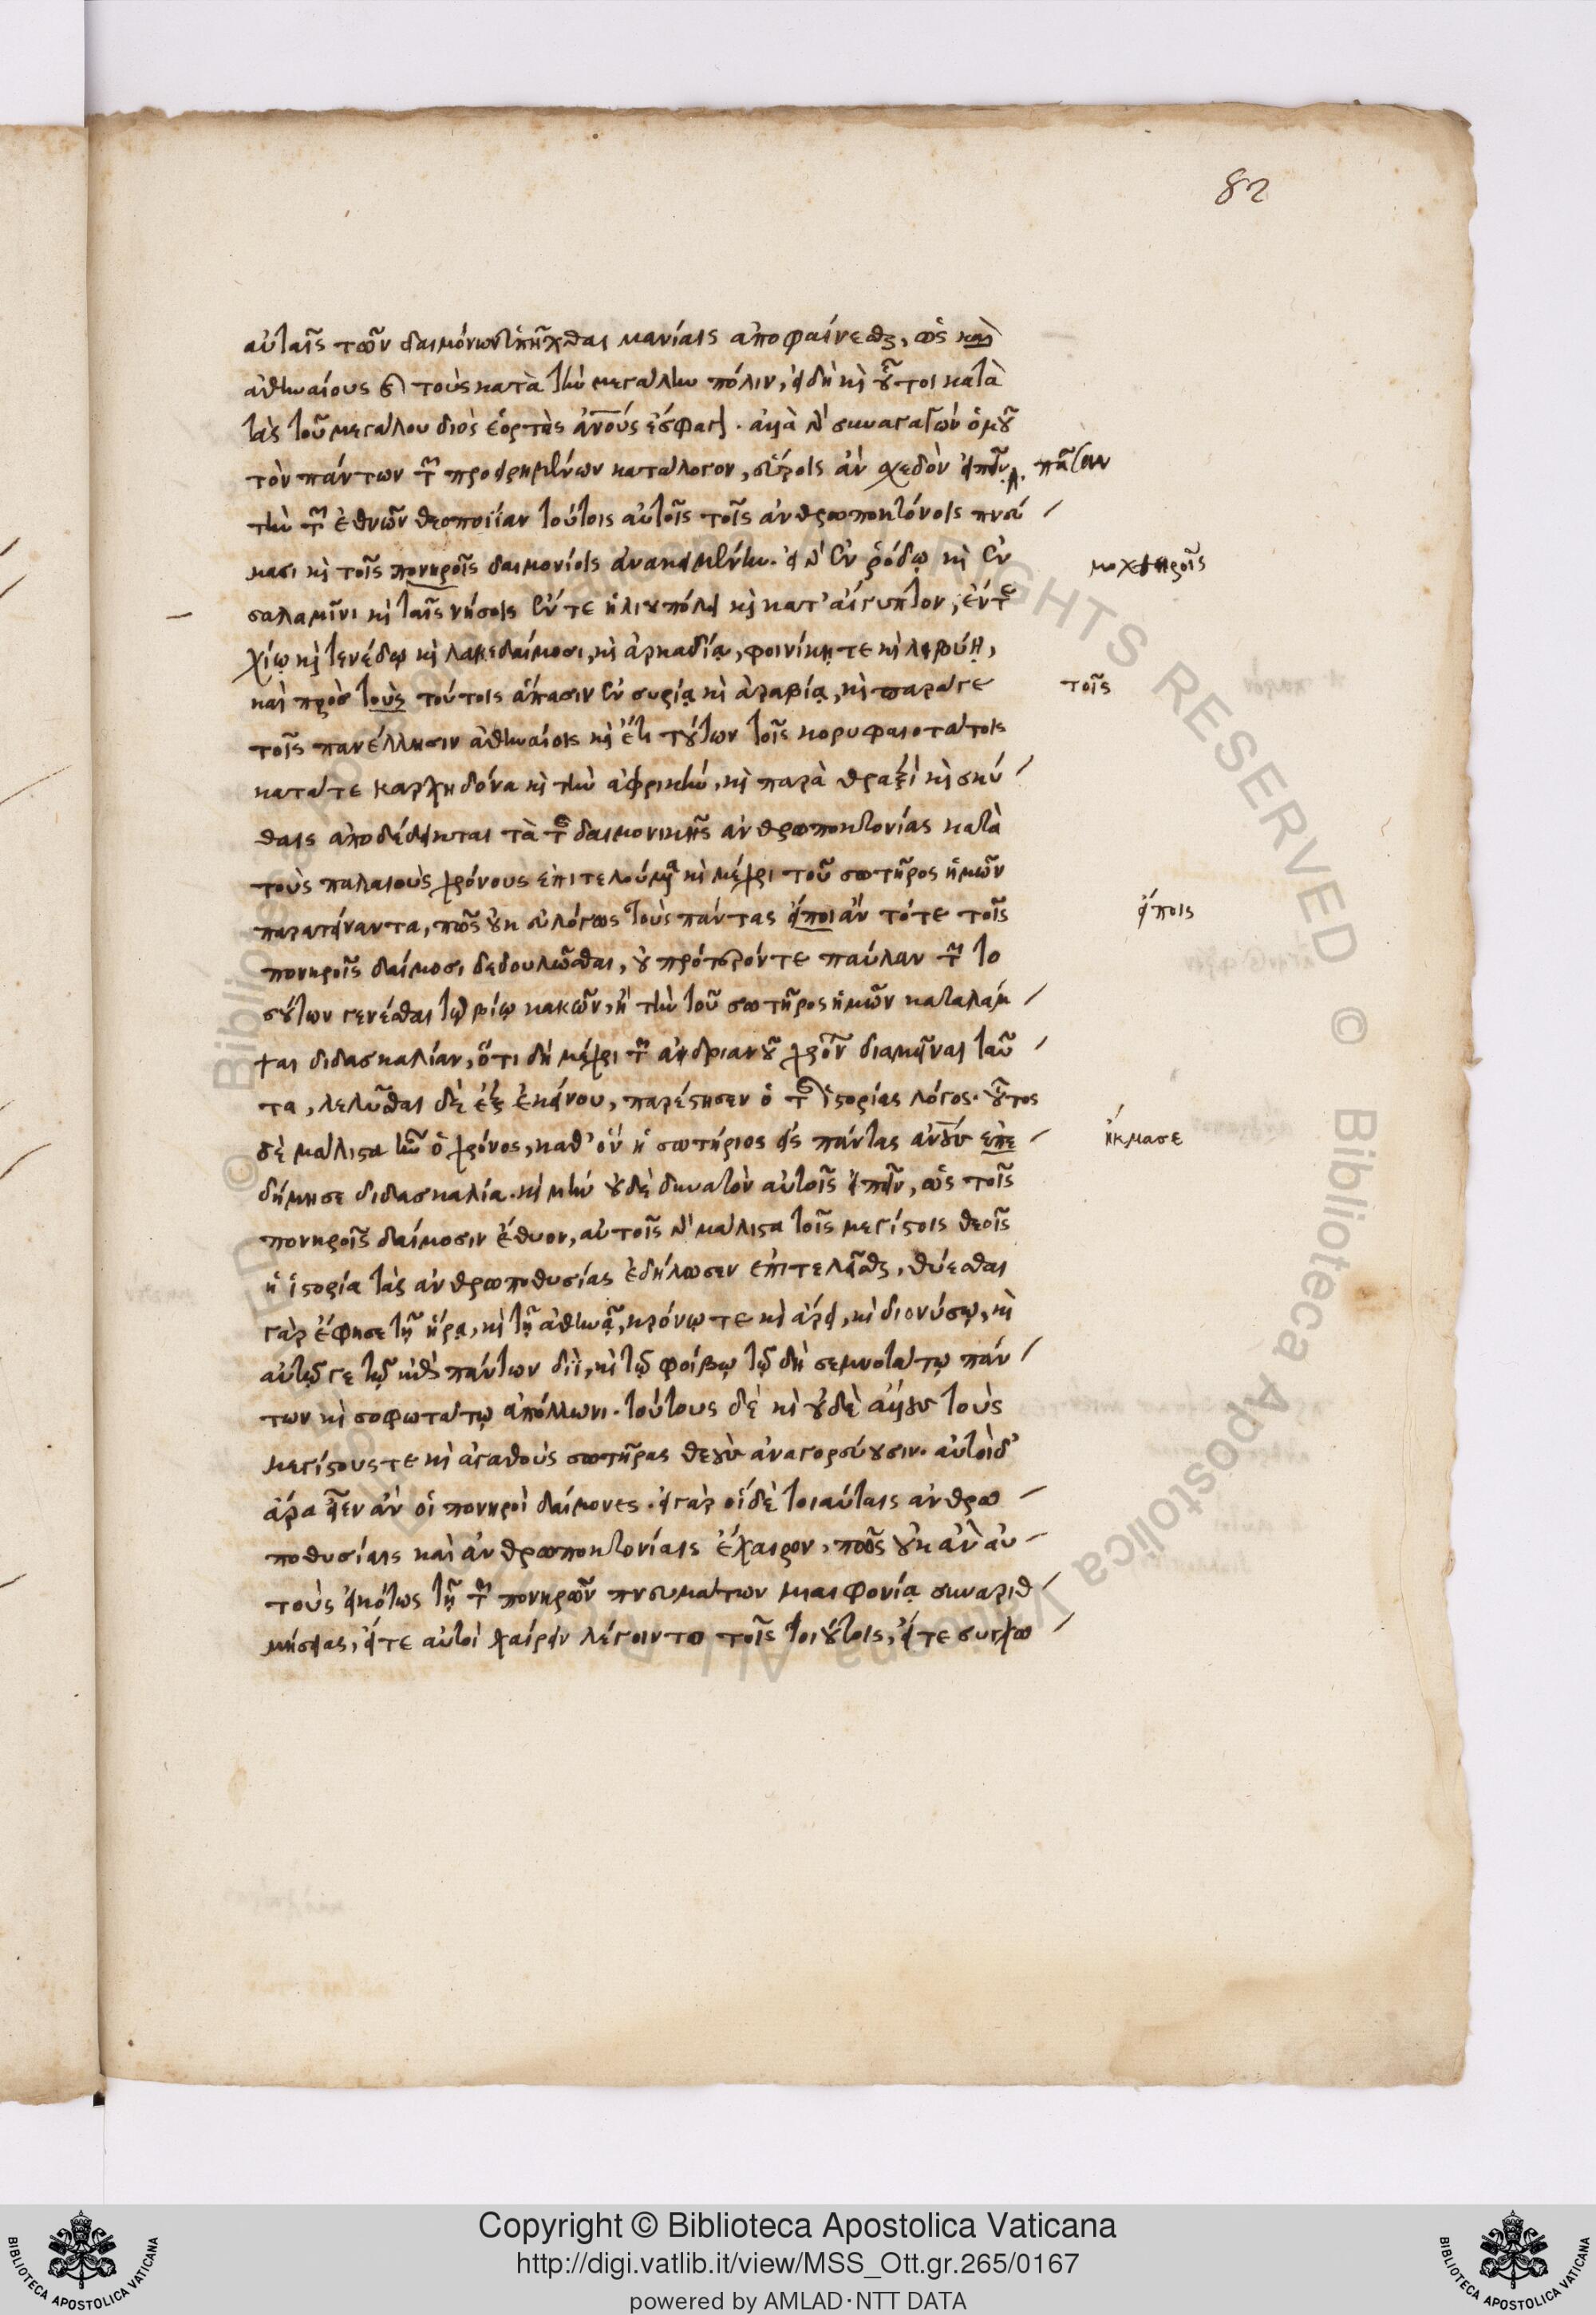 82
αὐταῖς τῶν δαιμόνων ὑπῆχθαι μανίαις ἀποφαίνεσθαι, ὡς καὶ
ἀθηναίους καὶ τοὺς κατὰ τὴν μεγάλην πόλιν, εἰ δὴ καὶ οὗτοι κατὰ
τὰς τοῦ μεγάλου διὸς ἑορτὰς ἀνους ἔσφαττον. ἀλλὰ γὰρ συναγαγὼν ὁμοῦ
τὸν πάντων τῶν προειρημένων κατάλογον, εὕροις ἂν σχεδὸν εἰπεῖν πᾶσαν
τὴν τῶν ἐθνῶν θεοποιΐαν τούτοις αὐτοῖς τοῖς ἀνθρωποκτόνοις πνεύ
μασι καὶ τοῖς πονηροῖς δαιμονίοις ἀνακειμένην. εἰ γὰρ ἐν ῥόδῳ καὶ ἐν μοχθηροῖς
σαλαμῖνι καὶ ταῖς νήσοις ἔν τε ἡλιουπόλει καὶ κατ' αἴγυπτον, ἔν τε
χίῳ καὶ τενέδῳ καὶ λακεδαίμοσι, καὶ ἀρκαδίᾳ, φοινίκῃ τε καὶ λιβύῃ,
καὶ πρὸς τοὺς τούτοις ἅπασιν ἐν συρίᾳ καὶ ἀραβίᾳ, καὶ παρά γε τοῖς
τοῖς πανέλλησιν ἀθηναίοις καὶ ἔτι τούτων τοῖς κορυφαιοτάτοις
κατά τε καρχηδόνα καὶ τὴν ἀφρικὴν, καὶ παρὰ θραξὶ καὶ σκύ
θαις ἀποδέδεικται τὰ τῆς δαιμονικῆς ἀνθρωποκτονίας κατὰ
τοὺς παλαιοὺς χρόνους ἐπιτελούμενα καὶ μέχρι τοῦ σωτῆρος ἡμῶν
παρατείναντα, πῶς οὐκ εὐλόγως τοὺς πάντας εἴποι ἂν τότε τοῖς εἴποις
πονηροῖς δαίμοσι δεδουλῶσθαι, οὐ πρότερόν τε παῦλαν τῶν το
σούτων γενέσθαι τῷ βίῳ κακῶν, ἢ τὴν τοῦ σωτῆρος ἡμῶν καταλάμ
ψαι διδασκαλίαν, ὅτι δὴ μέχρι τῶν ἀδριανοῦ χρόνων διαμεῖναι ταῦ
τα, λελῦσθαι δὲ ἐξ ἐκείνου, παρέστησεν ὁ τῆς ἱστορίας λόγος. οὗτος
δὲ μάλιστα ἦν ὁ χρόνος, καθ' ὃν ἡ σωτήριος εἰς πάντας ἀνους ἐπε ἤκμασε
δήμησε διδασκαλία. καὶ μὴν οὐδὲ δυνατὸν αὐτοῖς εἰπεῖν, ὡς τοῖς
πονηροῖς δαίμοσιν ἔθυον, αὐτοῖς γὰρ μάλιστα τοῖς μεγίστοις θεοῖς
ἡ ἱστορία τὰς ἀνθρωποθυσίας ἐδήλωσεν ἐπιτελεῖσθαι, θύεσθαι
γὰρ ἔφησε τῇ ἥρᾳ, καὶ τῇ ἀθηνᾷ, κρόνῳ τε καὶ ἄρει, καὶ διονύσῳ, καὶ
αὐτῷ γε τῷ κατὰ πάντων διΐ, καὶ τῷ φοίβῳ τῷ δὴ σεμνοτάτῳ πάν
των καὶ σοφωτάτῳ ἀπόλλωνι. τούτους δὲ καὶ οὐδὲ ἄλλους τοὺς
μεγίστους τε καὶ ἀγαθοὺς σωτῆρας θεοὺς ἀναγορεύουσιν. αὐτοὶ δ'
ἄρα εἶεν ἂν οἱ πονηροὶ δαίμονες. εἰ γὰρ οἵδε τοιαύταις ἀνθρω
ποθυσίαις καὶ ἀνθρωποκτονίαις ἔχαιρον, πῶς οὐκ ἂν αὐ
τοὺς εἰκότως τῇ τῶν πονηρῶν πνευμάτων μιαιφονίᾳ συναριθ
μήσειας, εἴτε αὐτοὶ χαίρειν λέγοιντο τοῖς τοιούτοις, εἴτε συγχω
Copyright © Biblioteca Apostolica Vaticana
http://digi.vatlib.it/view/MSS_Ott.gr.265/0167
powered by AMLAD·NTT DATA